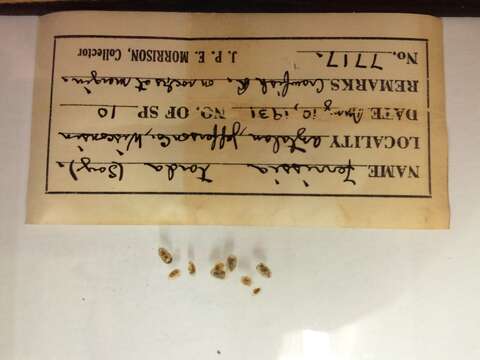 NAME Ferrissia tarda (Say).
LOCALITY Aztalan, Jefferson Co., Wisconsin
DATE Aug. 10, 1931 NO. OF SP. 10
REMARKS Crawfish R. on rocks at margin.
No. 7717. J. P. E. MORRISON, Collector